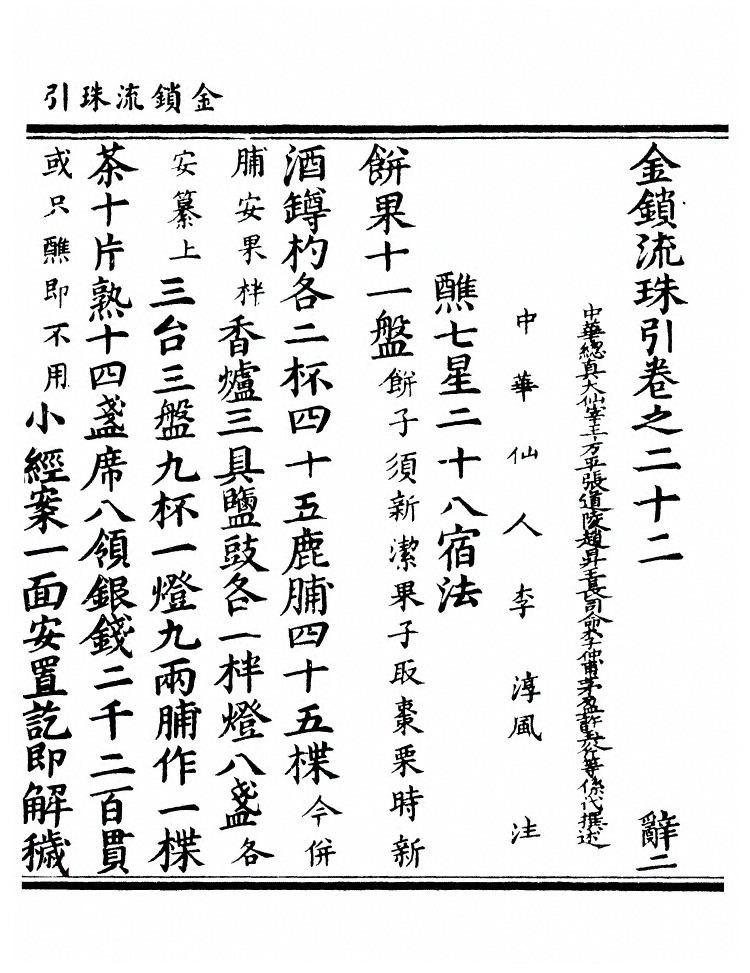 金鎖流珠引
金鎖流珠引卷之二十二 辭二
中華總真大仙宰王方平張道陵趙昇王長司命李仲甫茅盈許玉斧等係代撰述
中華仙人李淳風注
醮七星二十八宿法
餅果十一盤餅子須新潔果子取棗栗時新
酒罇杓各二杯四十五鹿脯四十五楪今併
脯安果柈香爐三具鹽豉各一柈燈八盞各
安纂上三台三盤九杯一燈九兩脯作一楪
茶十片熟十四盞席八領銀錢二千二百貫
或只醮即不用小經案一面安置訖即解穢